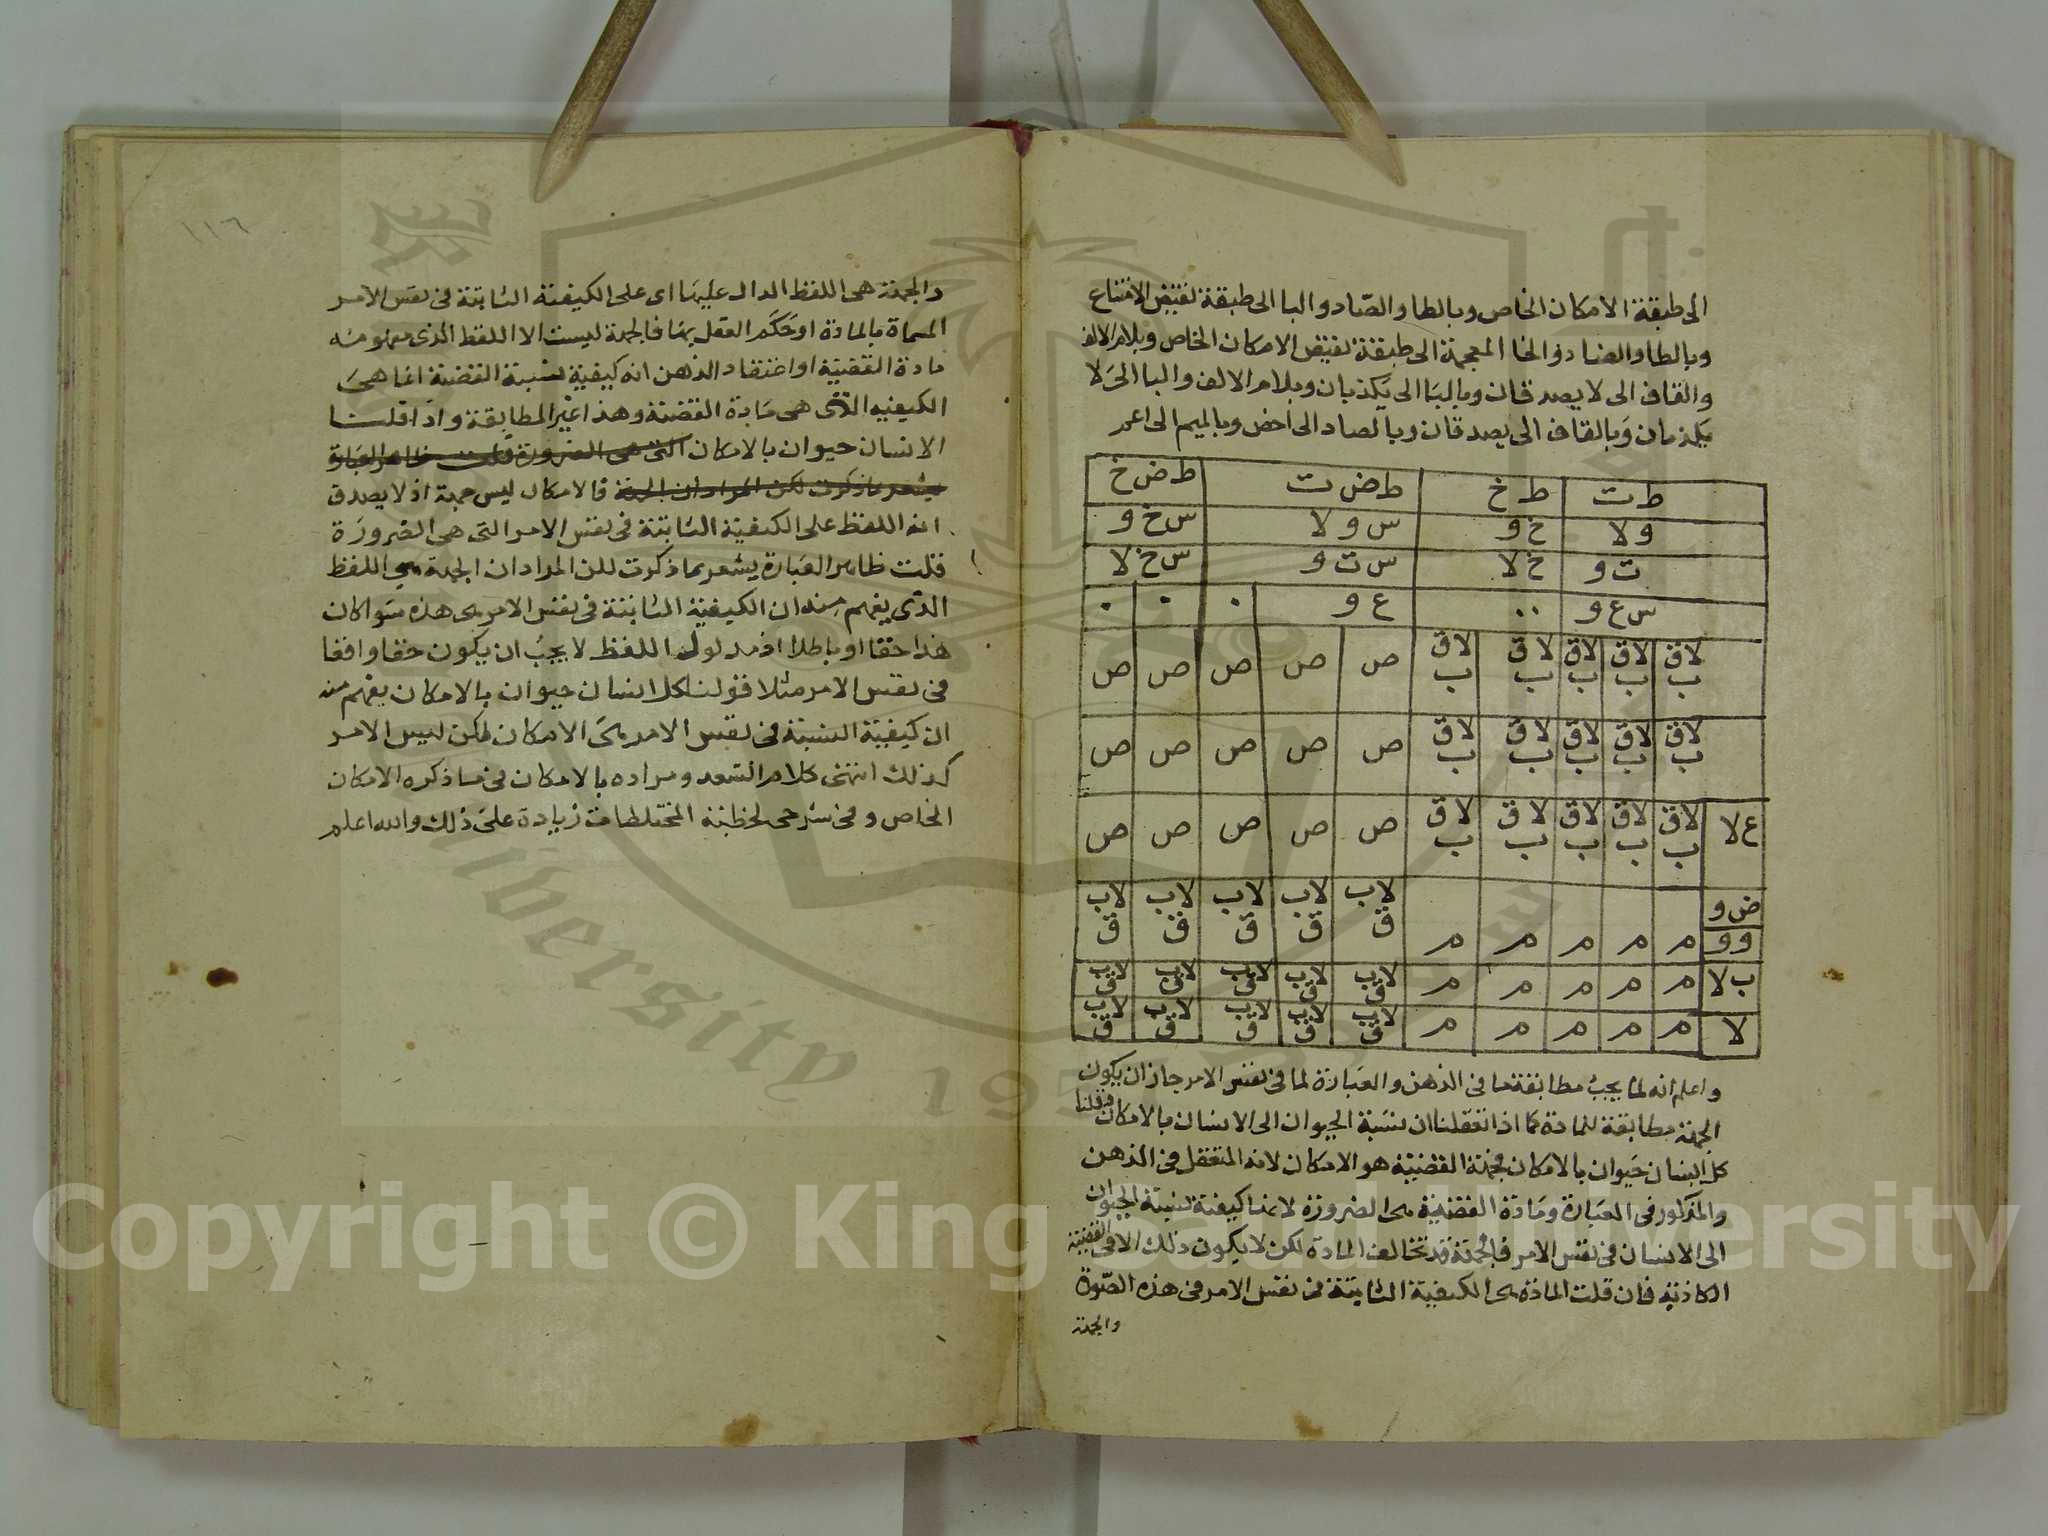 الى طبقة الامكان الخاص وبالطا والضاد والبا الى طبقة نقيض الامتناع
وبالطا والضاد والخا المعجمة الى طبقة نقيض الامكان الخاص وبلام الالف
والقاف الى لا يصدقان وبالبا الى يكذبان وبلام الالف والبا الى لا
يكذبان وبالقاف الى يصدقان وبالصاد الى اخص وبالميم الى اعم
ط ت ط خ ط ض ت ط ض خ
و لا خ و س و لا س خ و
ت و خ لا س ت و س خ لا
س ع و .. ع و . . .
لاق ب لاق ب لاق ب لاق ب لاق ب ص ص ص ص ص
لاق ب لاق ب لاق ب لاق ب لاق ب ص ص ص ص ص
ع لا لاق ب لاق ب لاق ب لاق ب لاق ب ص ص ص ص ص
ض و
و و م م م م م لاب ق لاب ق لاب ق لاب ق لاب ق
ب لا م م م م م لاب ق لاب ق لاب ق لاب ق لاب ق
لا م م م م م لاب ق لاب ق لاب ق لاب ق لاب ق
واعلم انه لما يجب مطابقة ما فى الذهن والعبارة لما فى نفس الامر جاز ان يكون
الجهة مطابقة للمادة كما اذا تعقلنا ان نسبة الحيوان الى الانسان بالامكان وقلنا
كل انسان حيوان بالامكان فجهة القضية هو الامكان لانه المتعقل فى الذهن
والمذكور فى العبارة ومادة القضية هى الضرورة لانها كيفية نسبة الحيوان
الى الانسان فى نفس الامر فالجهة قد تخالف المادة لكن لا يكون ذلك الا فى القضية
الكاذبة فان قلت المادة هى الكيفية الثابتة فى نفس الامر فى هذه الصورة
والجهة
١١٦
والجهة هى اللفظ الدال عليها اى على الكيفية الثابتة فى نفس الامر
المسماة بالمادة او حكم العقل بها فالجهة ليست الا اللفظ الذى مفهومه
مادة القضية او اعتقاد الذهن انه كيفية نسبة القضية انما هى
الكيفية التى هى مادة القضية وهذا غير المطابقة واذا قلنا
الانسان حيوان بالامكان التى هى الضرورة قلت ظاهر العبارة
يشعر بما ذكرت لكن المراد ان الجهة فالامكان ليس جهة اذ لا يصدق
انه اللفظ على الكيفية الثابتة فى نفس الامر التى هى الضرورة
قلت ظاهر العبارة يشعر بما ذكرت لكن المراد ان الجهة هى اللفظ
الذى يفهم منه ان الكيفية الثابتة فى نفس الامر هى هذه سوا كان
هذا حقا او باطلا اذ مدلول اللفظ لا يجب ان يكون حقا واقعا
فى نفس الامر مثلا قولنا كل انسان حيوان بالامكان يفهم منه
ان كيفية النسبة فى نفس الامر هى الامكان لكن ليس الامر
كذلك انتهى كلام السعد ومراده بالامكان فى ما ذكره الامكان
الخاص وفى شرحى لخطبة المختلطات زيادة على ذلك والله اعلم
Copyright © King Saud University